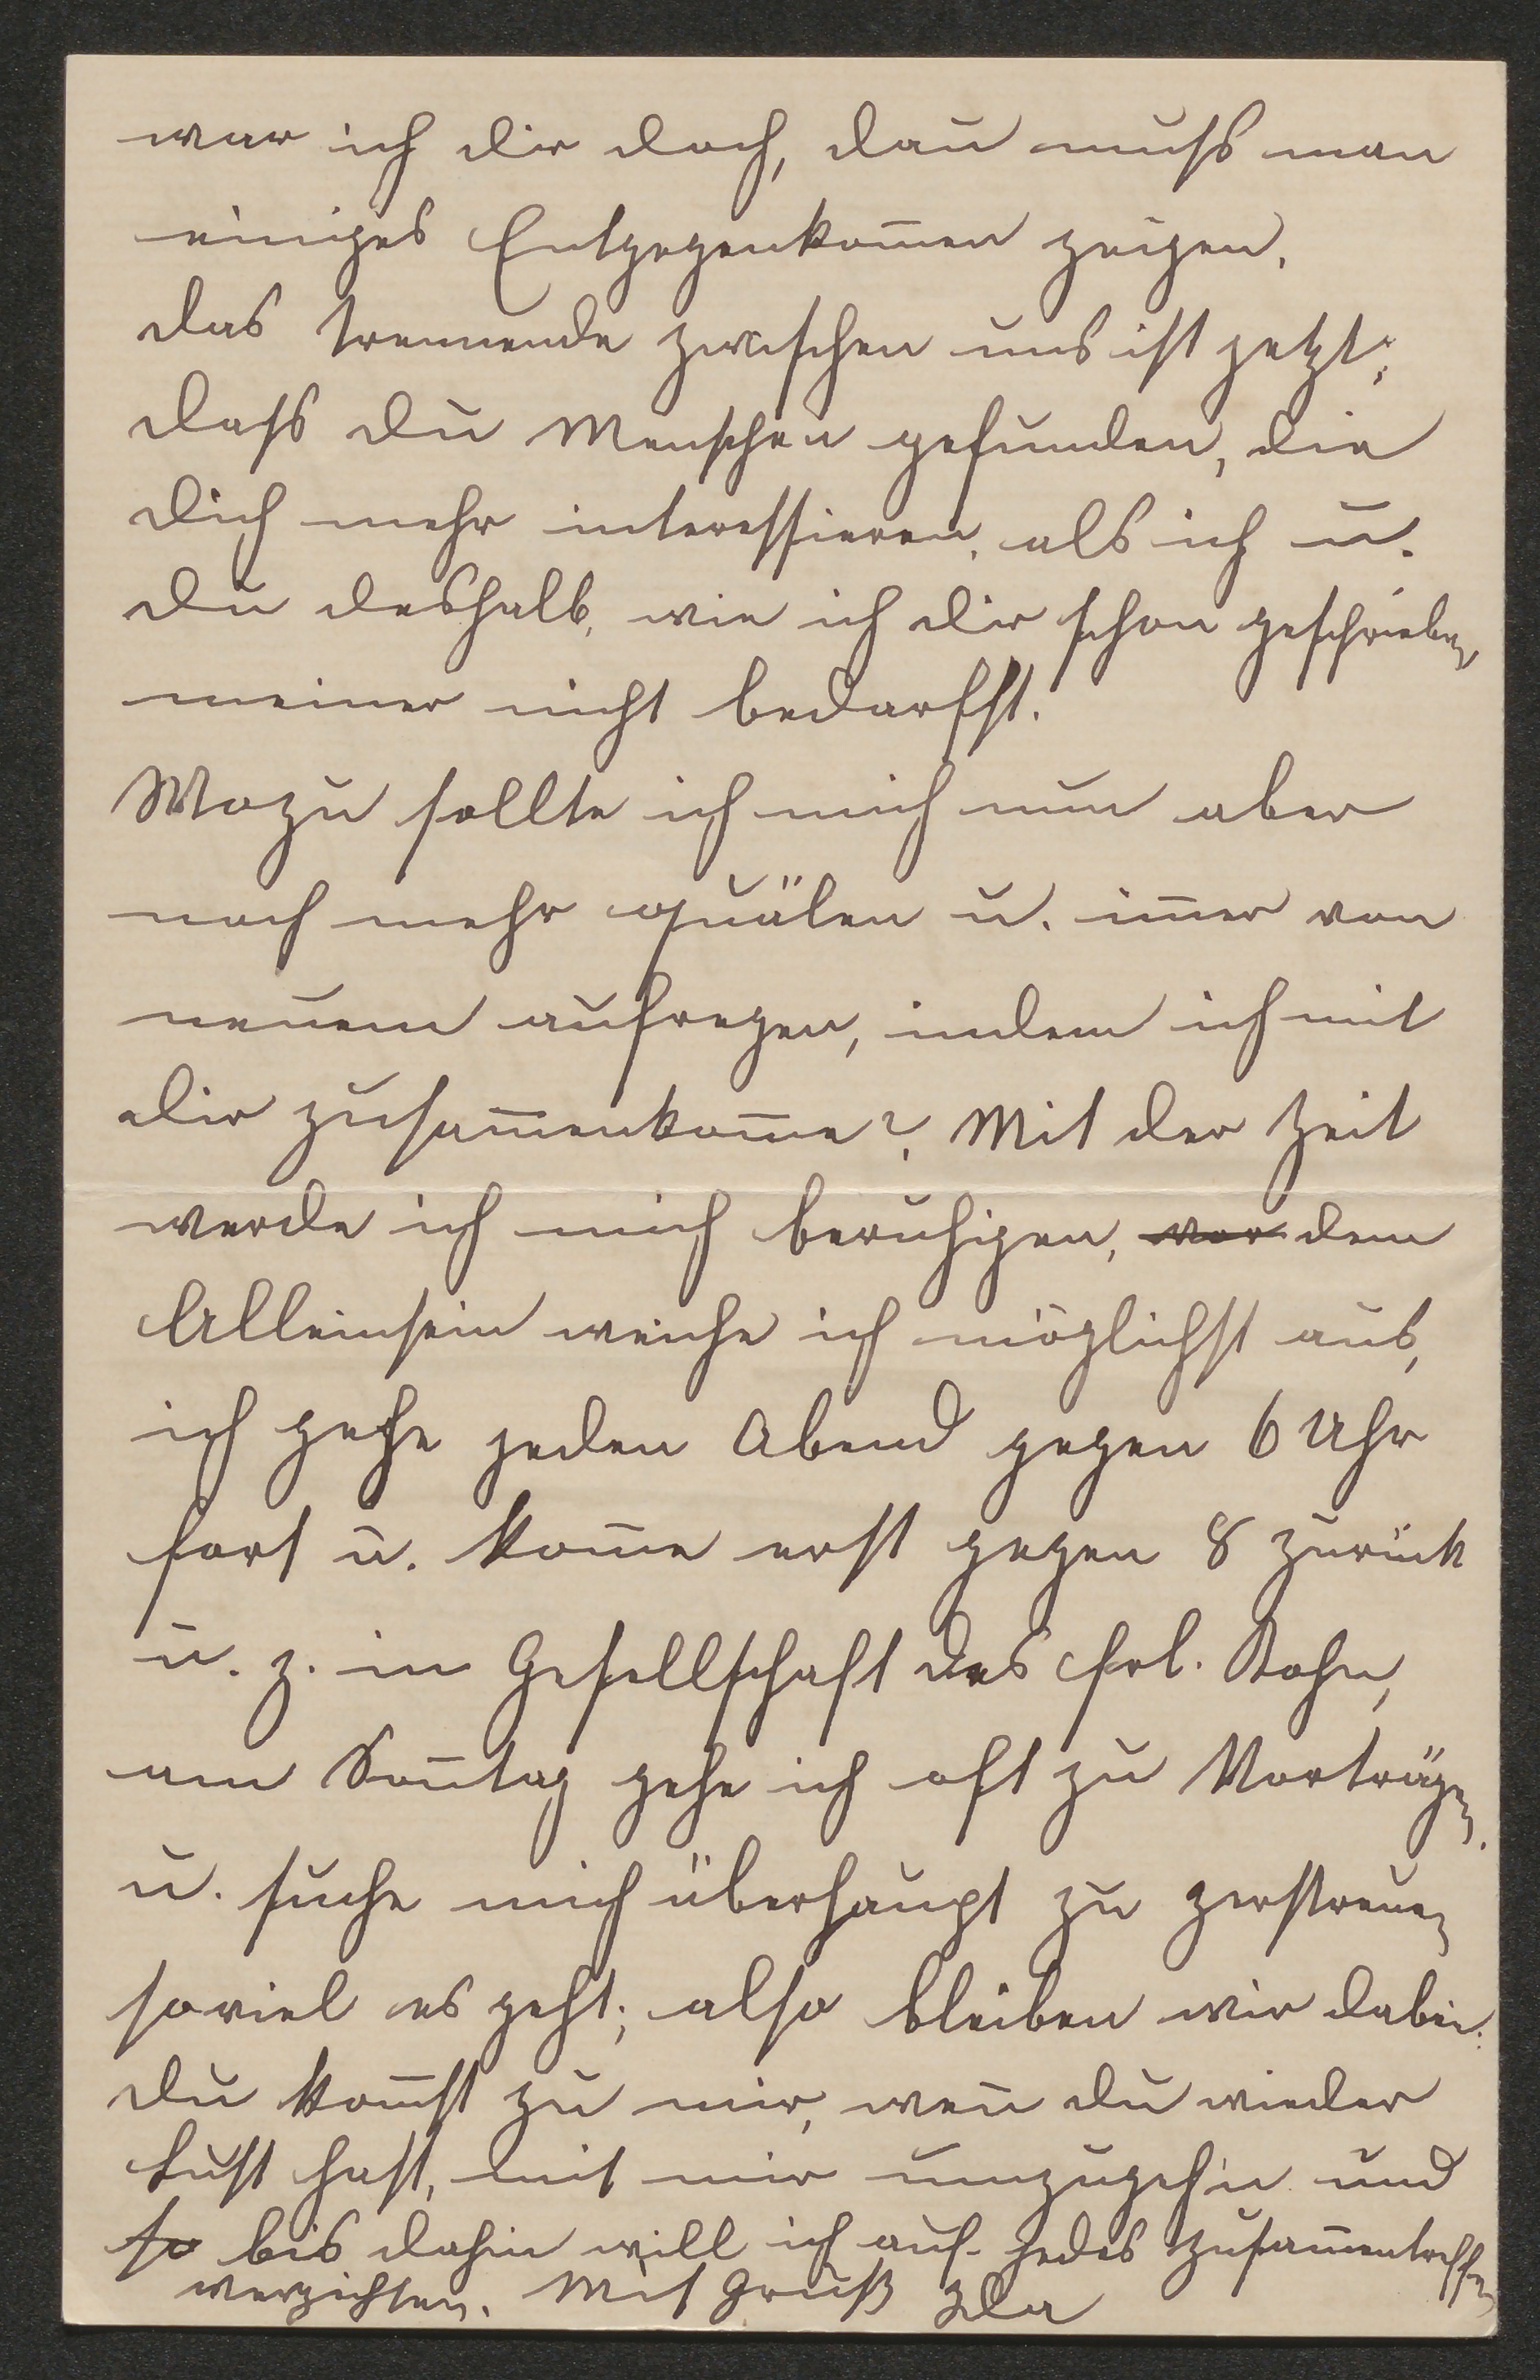 war ich dir doch, dan̄ muſs man
einiges Entgegenkom̄en zeigen.
das trennende zwischen uns ist jetzt,
daſs du Menschen gefunden, die
dich mehr interessieren, als ich u.
du deshalb, wie ich dir schon geschrieben,
meiner nicht bedarfst.
Wozu sollte ich mich nun aber
noch mehr quälen u. im̄er von
neuem aufregen, indem ich mit
dir zusam̄enkom̄e? Mit der Zeit
werde ich mich beruhigen, vor dem
Alleinsein weiche ich möglichst aus,
ich gehe jeden Abend gegen 6 Uhr
fort u. kom̄e erst gegen 8 zurück
u. z. in Gesellschaft des Frl. Bohn,
am Son̄tag gehe ich oft zu Vorträgen
u. suche mich überhaupt zu zerstreuen
soviel es geht; also bleiben wir dabei:
du kom̄st zu mir, wen̄ du wieder
Lust hast, mit mir umzugeh'n und
so bis dahin will ich auf jedes Zusam̄entreffen
verzichten. Mit Gruß Ida